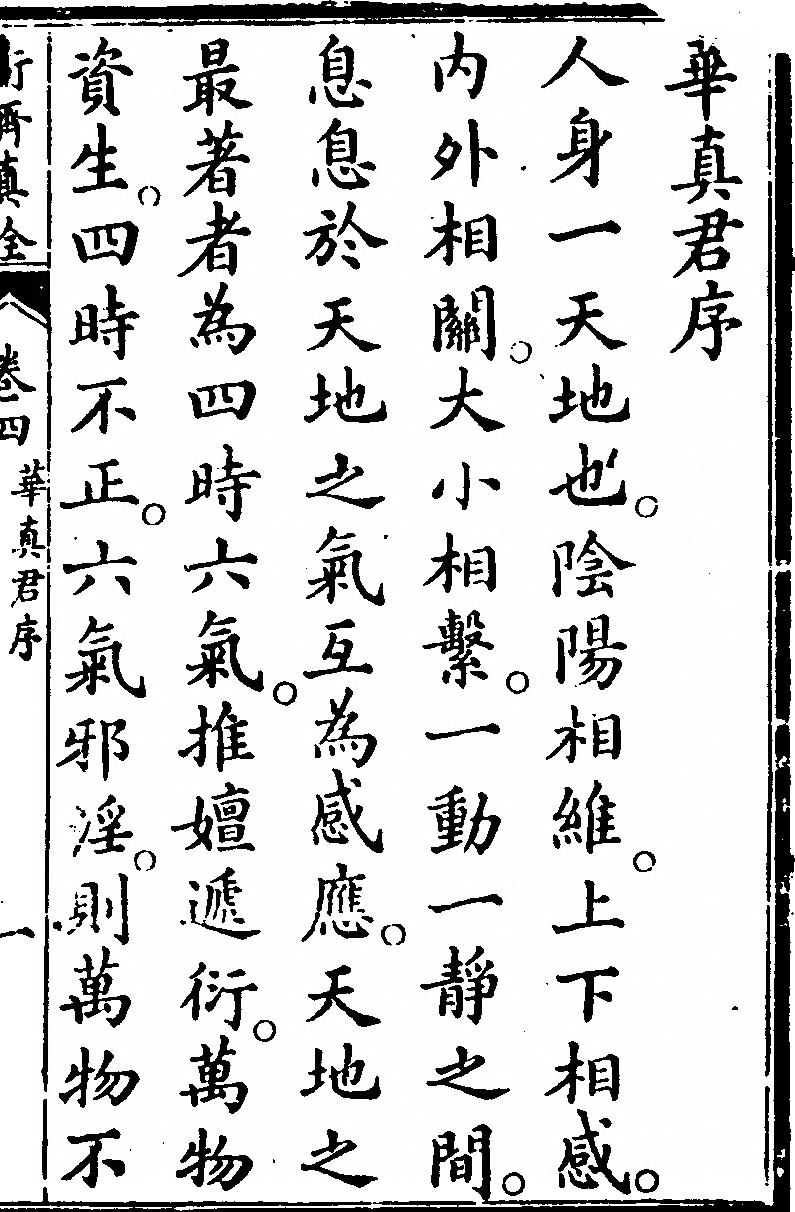 華真君序
人身一天地也。陰陽相維。上下相感。
內外相關。大小相繫。一動一靜之間。
息息於天地之氣互為感應。天地之
最著者為四時六氣。推嬗遞衍。萬物
資生。四時不正。六氣邪淫。則萬物不
衍齊真全
卷四
華真君序
一